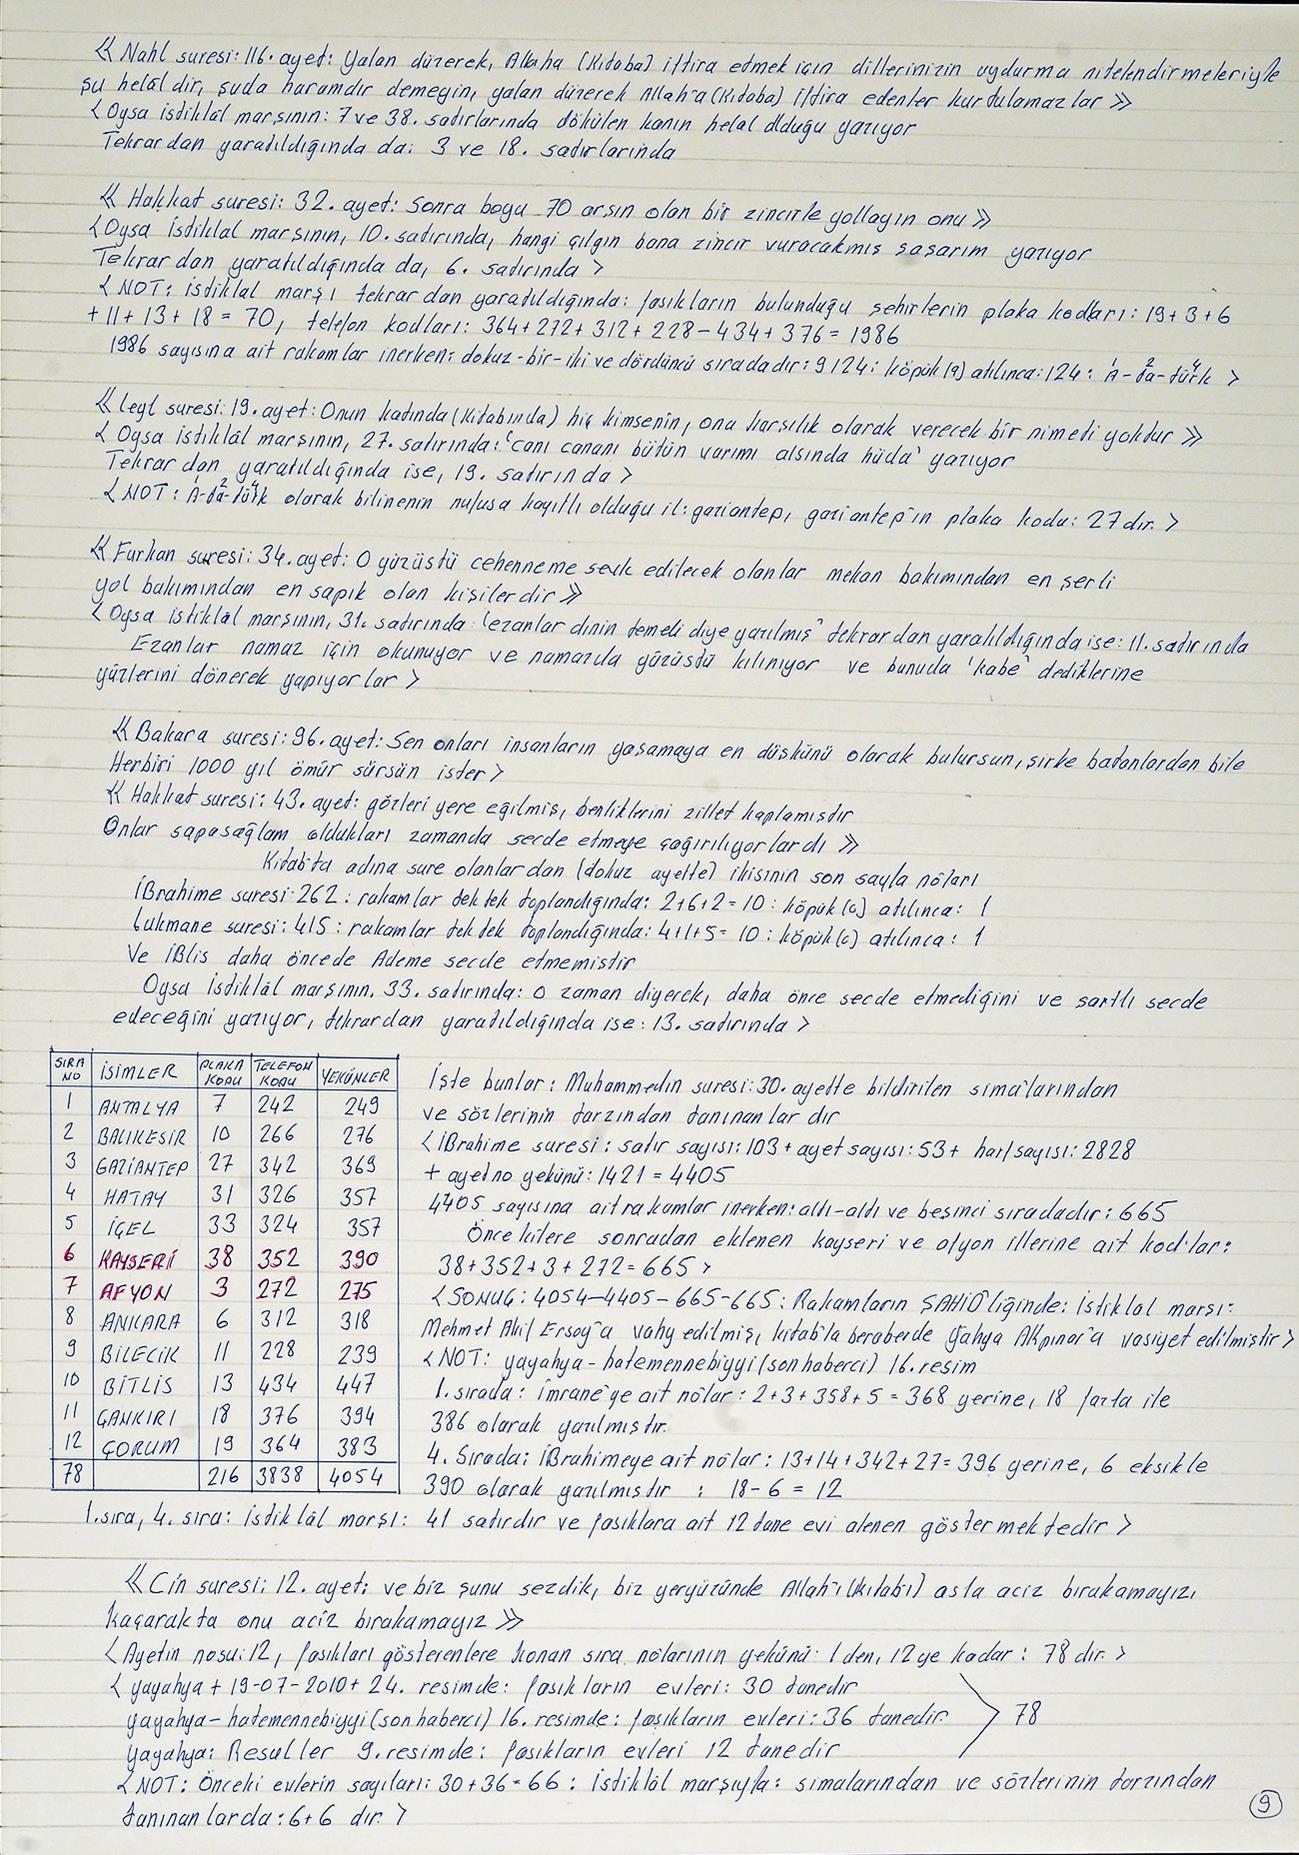 《 Nahl suresi: 116. ayet: Yalan düzerek, Allaha (Kitaba) iftira etmek için dillerinizin uydurma nitelendirmeleriyle
şu helâldir, şuda haramdır demeyin, yalan düzerek Allah'a (Kitaba) iftira edenler kurtulamazlar 》
< Oysa istiklâl marşının: 7 ve 38. satırlarında dökülen kanın helal olduğu yazıyor
Tekrardan yaratıldığında da: 3 ve 18. satırlarında
《 Hakkat suresi: 32. ayet: Sonra boyu 70 arşın olan bir zincirle yollayın onu 》
< Oysa istiklal marşının, 10. satırında, hangi çılgın bana zincir vuracakmış şaşarım yazıyor
Tekrardan yaratıldığında da, 6. satırında >
< NOT: istiklal marşı tekrardan yaratıldığında: fasıkların bulunduğu şehirlerin plaka kodları: 19+3+6
+11+13+18=70, telefon kodları: 364+272+312+228-434+376=1986
1986 sayısına ait rakamlar inerken: dokuz-bir-iki ve dördüncü sıradadır: 9124: köpük (9) atılınca: 124: A-ta-türk >
1 2 4
《 Leyl suresi: 19. ayet: Onun katında (Kitabında) hiç kimsenin, ona karşılık olarak verecek bir nimeti yoktur 》
< Oysa istiklâl marşının, 27. satırında: 'canı cananı bütün varımı alsında hüda' yazıyor
Tekrardan yaratıldığında ise, 19. satırında >
< NOT: A-ta-türk olarak bilinenin nufusa kayıtlı olduğu il: gaziantep, gaziantep'in plaka kodu: 27 dır. >
《 Furkan suresi: 34. ayet: O yüzüstü cehenneme sevk edilecek olanlar mekan bakımından en şerli
yol bakımından en sapık olan kişilerdir 》
< Oysa istiklâl marşının, 31. satırında 'ezanlar dinin temeli diye yazılmış' tekrardan yaratıldığında ise: 11. satırında
Ezanlar namaz için okunuyor ve namazda yüzüstü kılınıyor ve bunuda 'kabe' dediklerine
yüzlerini dönerek yapıyorlar >
《 Bakara suresi: 96. ayet: Sen onları insanların yaşamaya en düşkünü olarak bulursun, şirke batanlardan bile
Herbiri 1000 yıl ömür sürsün ister >
《 Hakkat suresi: 43. ayet: gözleri yere eğilmiş, benliklerini zillet kaplamıştır
Onlar sapasağlam oldukları zamanda secde etmeye çağırılıyorlardı 》
Kitabta adına sure olanlardan (dokuz ayette) ikisinin son sayfa nôları
İBrahime suresi 262: rakamlar tek tek toplandığında: 2+6+2=10: köpük (0) atılınca: 1
Lukmane suresi: 415: rakamlar tek tek toplandığında: 4+1+5=10: köpük (0) atılınca: 1
Ve İBlis daha öncede Ademe secde etmemiştir
Oysa İstiklâl marşının. 33. satırında: o zaman diyerek, daha önce secde etmediğini ve şartlı secde
edeceğini yazıyor, tekrardan yaratıldığında ise: 13. satırında >
SIRA NO İSİMLER PLAKA KODU TELEFON KODU YEKÜNLER
1 ANTALYA 7 242 249
2 BALIKESİR 10 266 276
3 GAZİANTEP 27 342 369
4 HATAY 31 326 357
5 İÇEL 33 324 357
6 KAYSERİ 38 352 390
7 AFYON 3 272 275
8 ANKARA 6 312 318
9 BİLECİK 11 228 239
10 BİTLİS 13 434 447
11 ÇANKIRI 18 376 394
12 ÇORUM 19 364 383
78 216 3838 4054
İşte bunlar: Muhammedin suresi: 30. ayette bildirilen sima'larından
ve sözlerinin tarzından tanınanlar dır
< İBrahime suresi: satır sayısı: 103 + ayet sayısı: 53 + harf sayısı: 2828
+ ayet no yekünü: 1421 = 4405
4405 sayısına ait rakamlar inerken: altı-altı ve beşinci sıradadır: 665
Öncekilere sonradan eklenen kayseri ve afyon illerine ait kodlar:
38+352+3+272=665 >
< SONUÇ: 4054-4405-665-665: Rakamların ŞAHİDliğinde: İstiklal marşı:
Mehmet Akif Ersoy'a vahy edilmiş, kitab'la beraberde Yahya Akpınar'a vasiyet edilmiştir >
< NOT: yayahya-hatemennebiyyi (son haberci) 16. resim
1. sırada: imrane'ye ait nôlar: 2+3+358+5=368 yerine, 18 fazla ile
386 olarak yazılmıştır.
4. Sırada: İBrahimeye ait nôlar: 13+14+342+27=396 yerine, 6 eksikle
390 olarak yazılmıştır : 18-6=12
1. sıra, 4. sıra: istiklâl marşı: 41 satırdır ve fasıklara ait 12 tane evi alenen göstermektedir >
《 Cin suresi: 12. ayet: ve biz şunu sezdik, biz yeryüzünde Allah'ı (kitab'ı) asla aciz bırakamayız,
kaçarakta onu aciz bırakamayız 》
< Ayetin nosu: 12, fasıkları gösterenlere konan sıra nôlarının yekünü 1 den, 12 ye kadar: 78 dir. >
< yayahya + 19-07-2010 + 24. resimde: fasıkların evleri: 30 tanedir
yayahya-hatemennebiyyi (son haberci) 16. resimde: fasıkların evleri: 36 tanedir. > 78
Yayahya: Resuller 9. resimde: fasıkların evleri 12 tanedir
< NOT: Önceki evlerin sayıları: 30+36=66: istiklâl marşıyla: simalarından ve sözlerinin tarzından
tanınanlarda: 6+6 dır. >
9